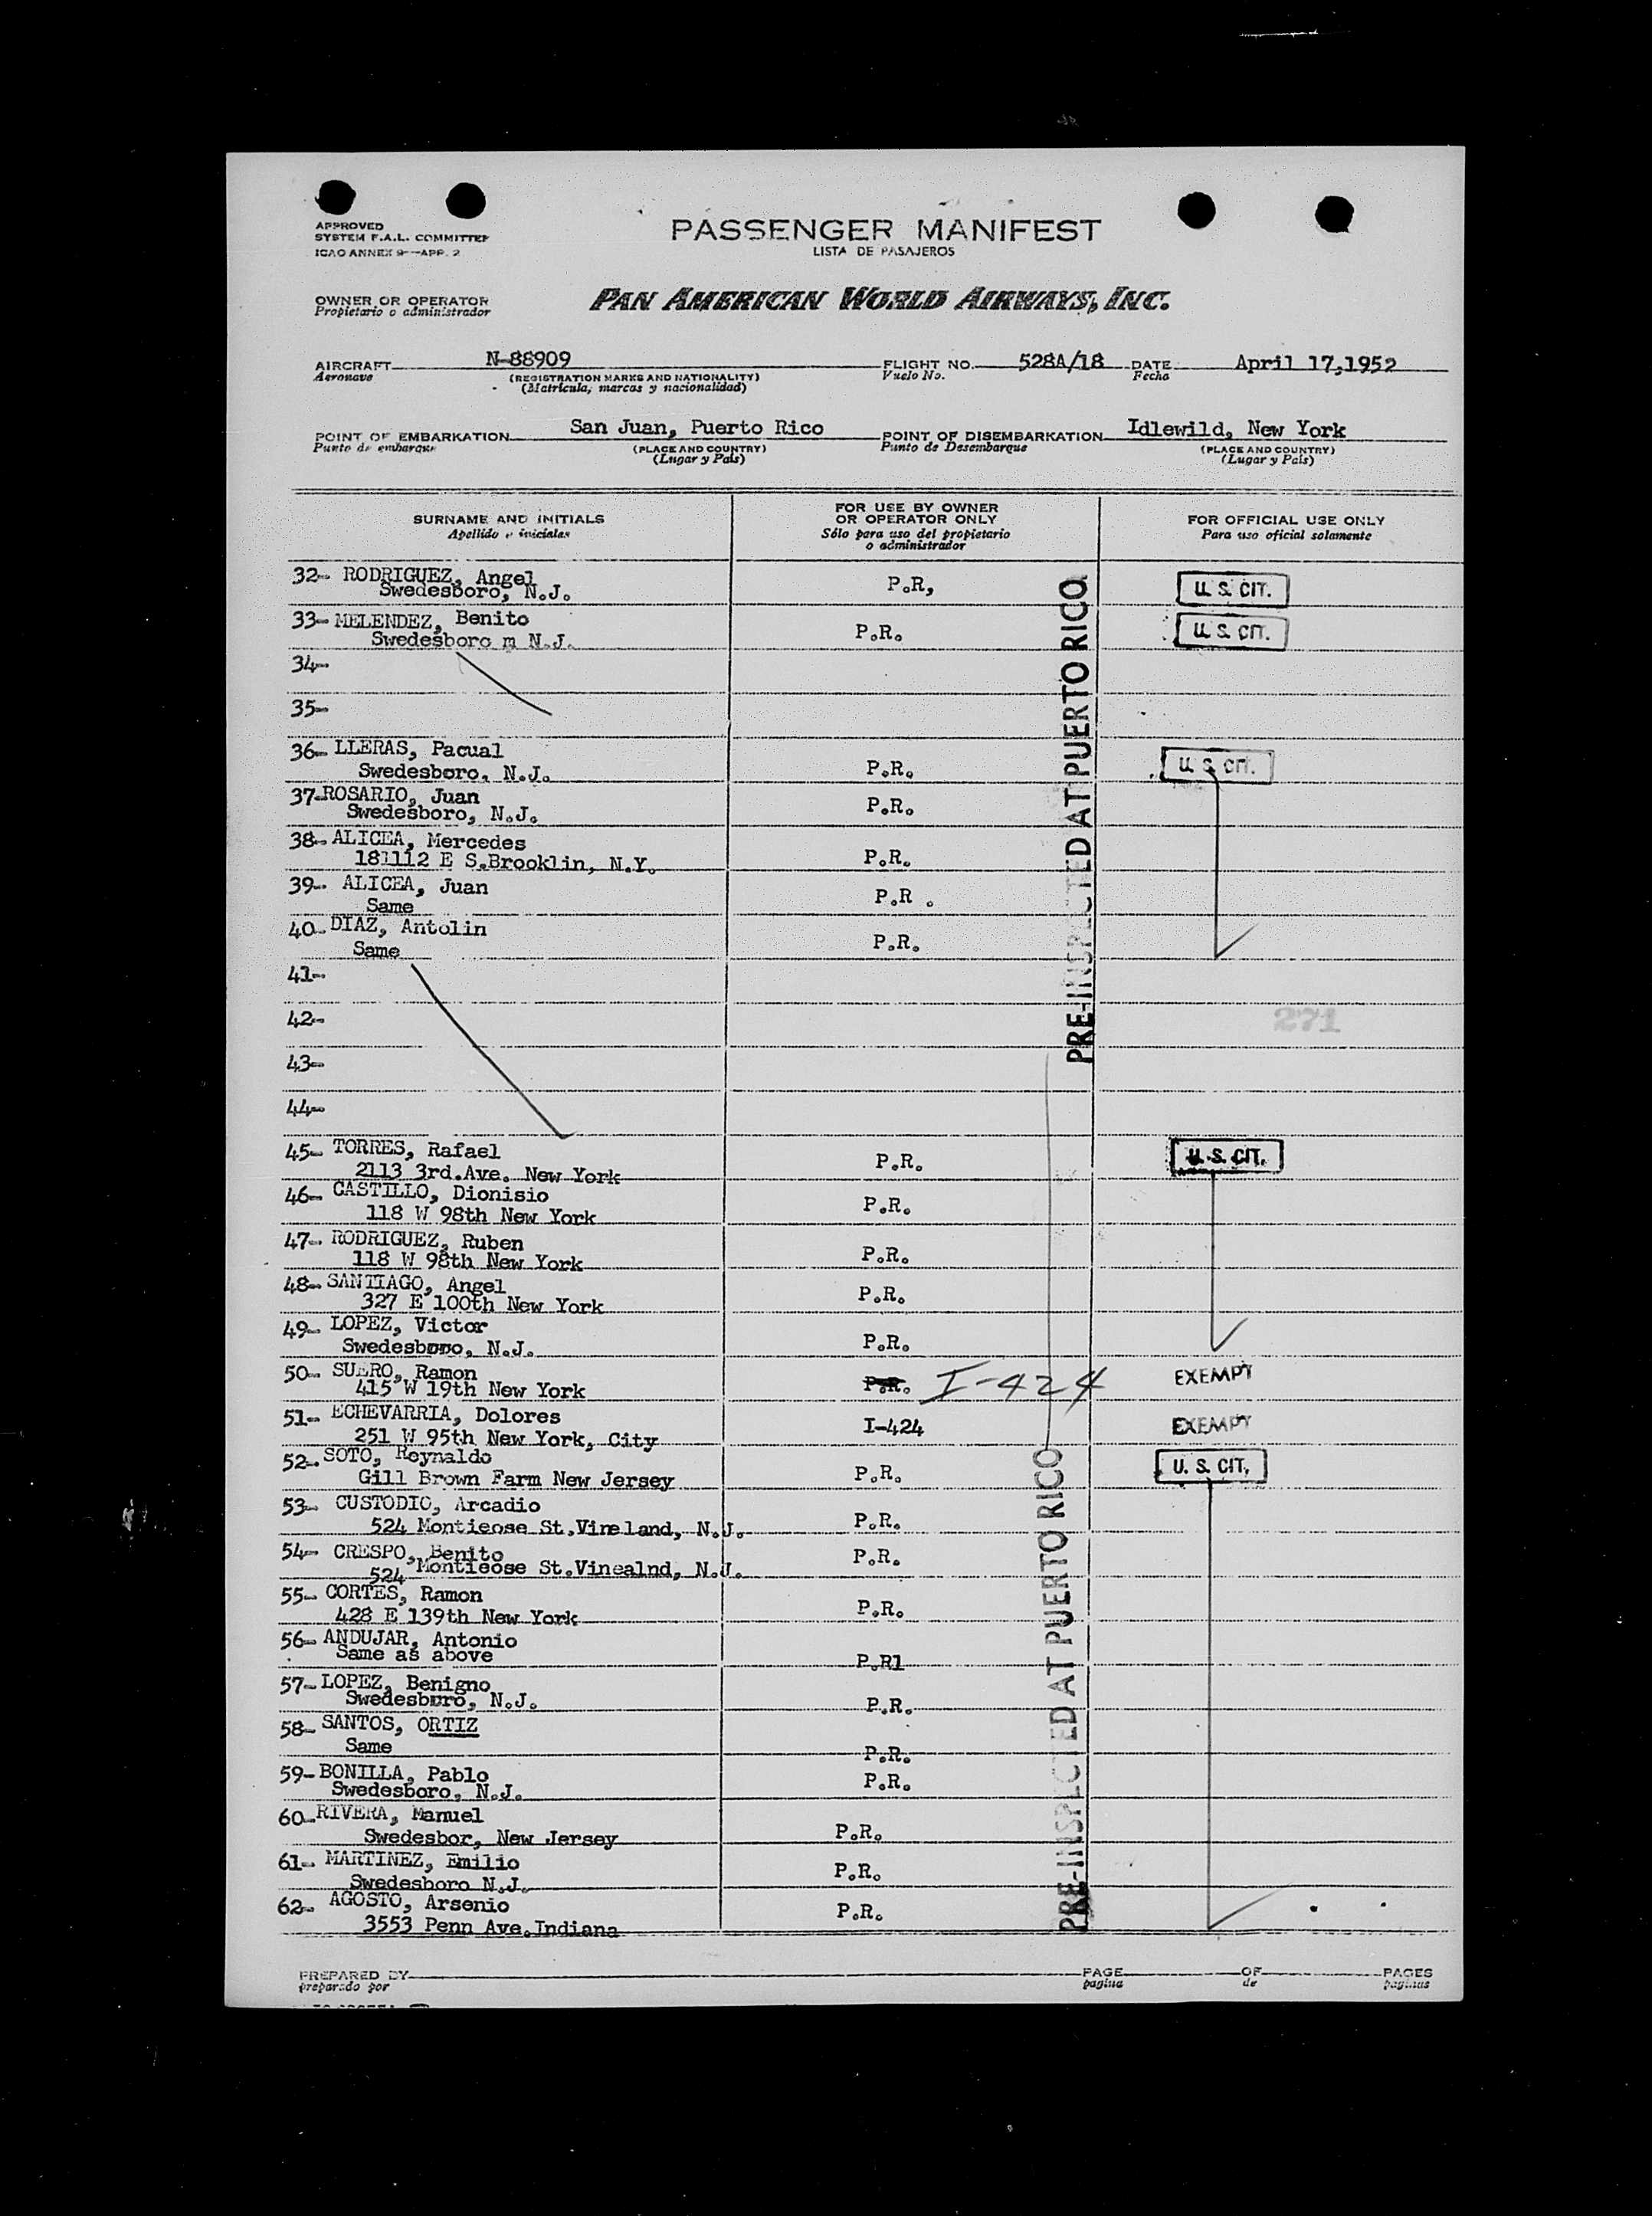 APPROVED
SYSTEM F.A.L. COMMITTEE
ICAO ANNEX 9—APP. 2
PASSENGER MANIFEST
LISTA DE PASAJEROS
OWNER OR OPERATOR
Propietario o administrador
PAN AMERICAN WORLD AIRWAYS, INC.
AIRCRAFT N-88909 FLIGHT NO. 528A/18 DATE April 17,1952
Aeronave (REGISTRATION MARKS AND NATIONALITY) Vuelo No. Fecha
(Matrícula, marcas y nacionalidad)
POINT OF EMBARKATION San Juan, Puerto Rico POINT OF DISEMBARKATION Idlewild, New York
Punto de embarque (PLACE AND COUNTRY) Punto de Desembarque (PLACE AND COUNTRY)
(Lugar y País) (Lugar y País)
SURNAME AND INITIALS
Apellido e iniciales
FOR USE BY OWNER
OR OPERATOR ONLY
Sólo para uso del propietario
o administrador
FOR OFFICIAL USE ONLY
Para uso oficial solamente
32- RODRIGUEZ, Angel P.R, U. S. CIT.
Swedesboro, N.J.
33- MELENDEZ, Benito P.R. U. S. CIT.
Swedesboro m N.J.
34-
35-
36- LLERAS, Pacual P.R. U. S. CIT.
Swedesboro, N.J.
37-ROSARIO, Juan P.R.
Swedesboro, N.J.
38- ALICEA, Mercedes P.R.
181112 E S.Brooklin, N.Y.
39- ALICEA, Juan P.R .
Same
40- DIAZ, Antolin P.R.
Same
PRE-INSPECTED AT PUERTO RICO
41-
42- 271
43-
44-
45- TORRES, Rafael P.R. U. S. CIT.
2113 3rd.Ave. New York
46- CASTILLO, Dionisio P.R.
118 W 98th New York
47- RODRIGUEZ, Ruben P.R.
118 W 98th New York
48- SANTIAGO, Angel P.R.
327 E 100th New York
49- LOPEZ, Victor P.R.
Swedesboro, N.J.
50- SUERO, Ramon P.R. I-424 EXEMPT
415 W 19th New York
51- ECHEVARRIA, Dolores I-424 EXEMPT
251 W 95th New York, City
52- SOTO, Reynaldo P.R. U. S. CIT.
Gill Brown Farm New Jersey
53- CUSTODIO, Arcadio P.R.
524 Montieose St.Vineland, N.J.
54- CRESPO, Benito P.R.
524 Montieose St.Vinealnd, N.J.
55- CORTES, Ramon P.R.
428 E 139th New York
56- ANDUJAR, Antonio P.R1
Same as above
57- LOPEZ, Benigno P.R.
Swedesboro, N.J.
58- SANTOS, ORTIZ P.R.
Same
59- BONILLA, Pablo P.R.
Swedesboro, N.J.
60- RIVERA, Manuel P.R.
Swedesbor, New Jersey
61- MARTINEZ, Emilio P.R.
Swedesboro N.J.
62- AGOSTO, Arsenio P.R.
3553 Penn Ave.Indiana
PRE-INSPECTED AT PUERTO RICO
PREPARED BY PAGE OF PAGES
preparado por pagina de paginas